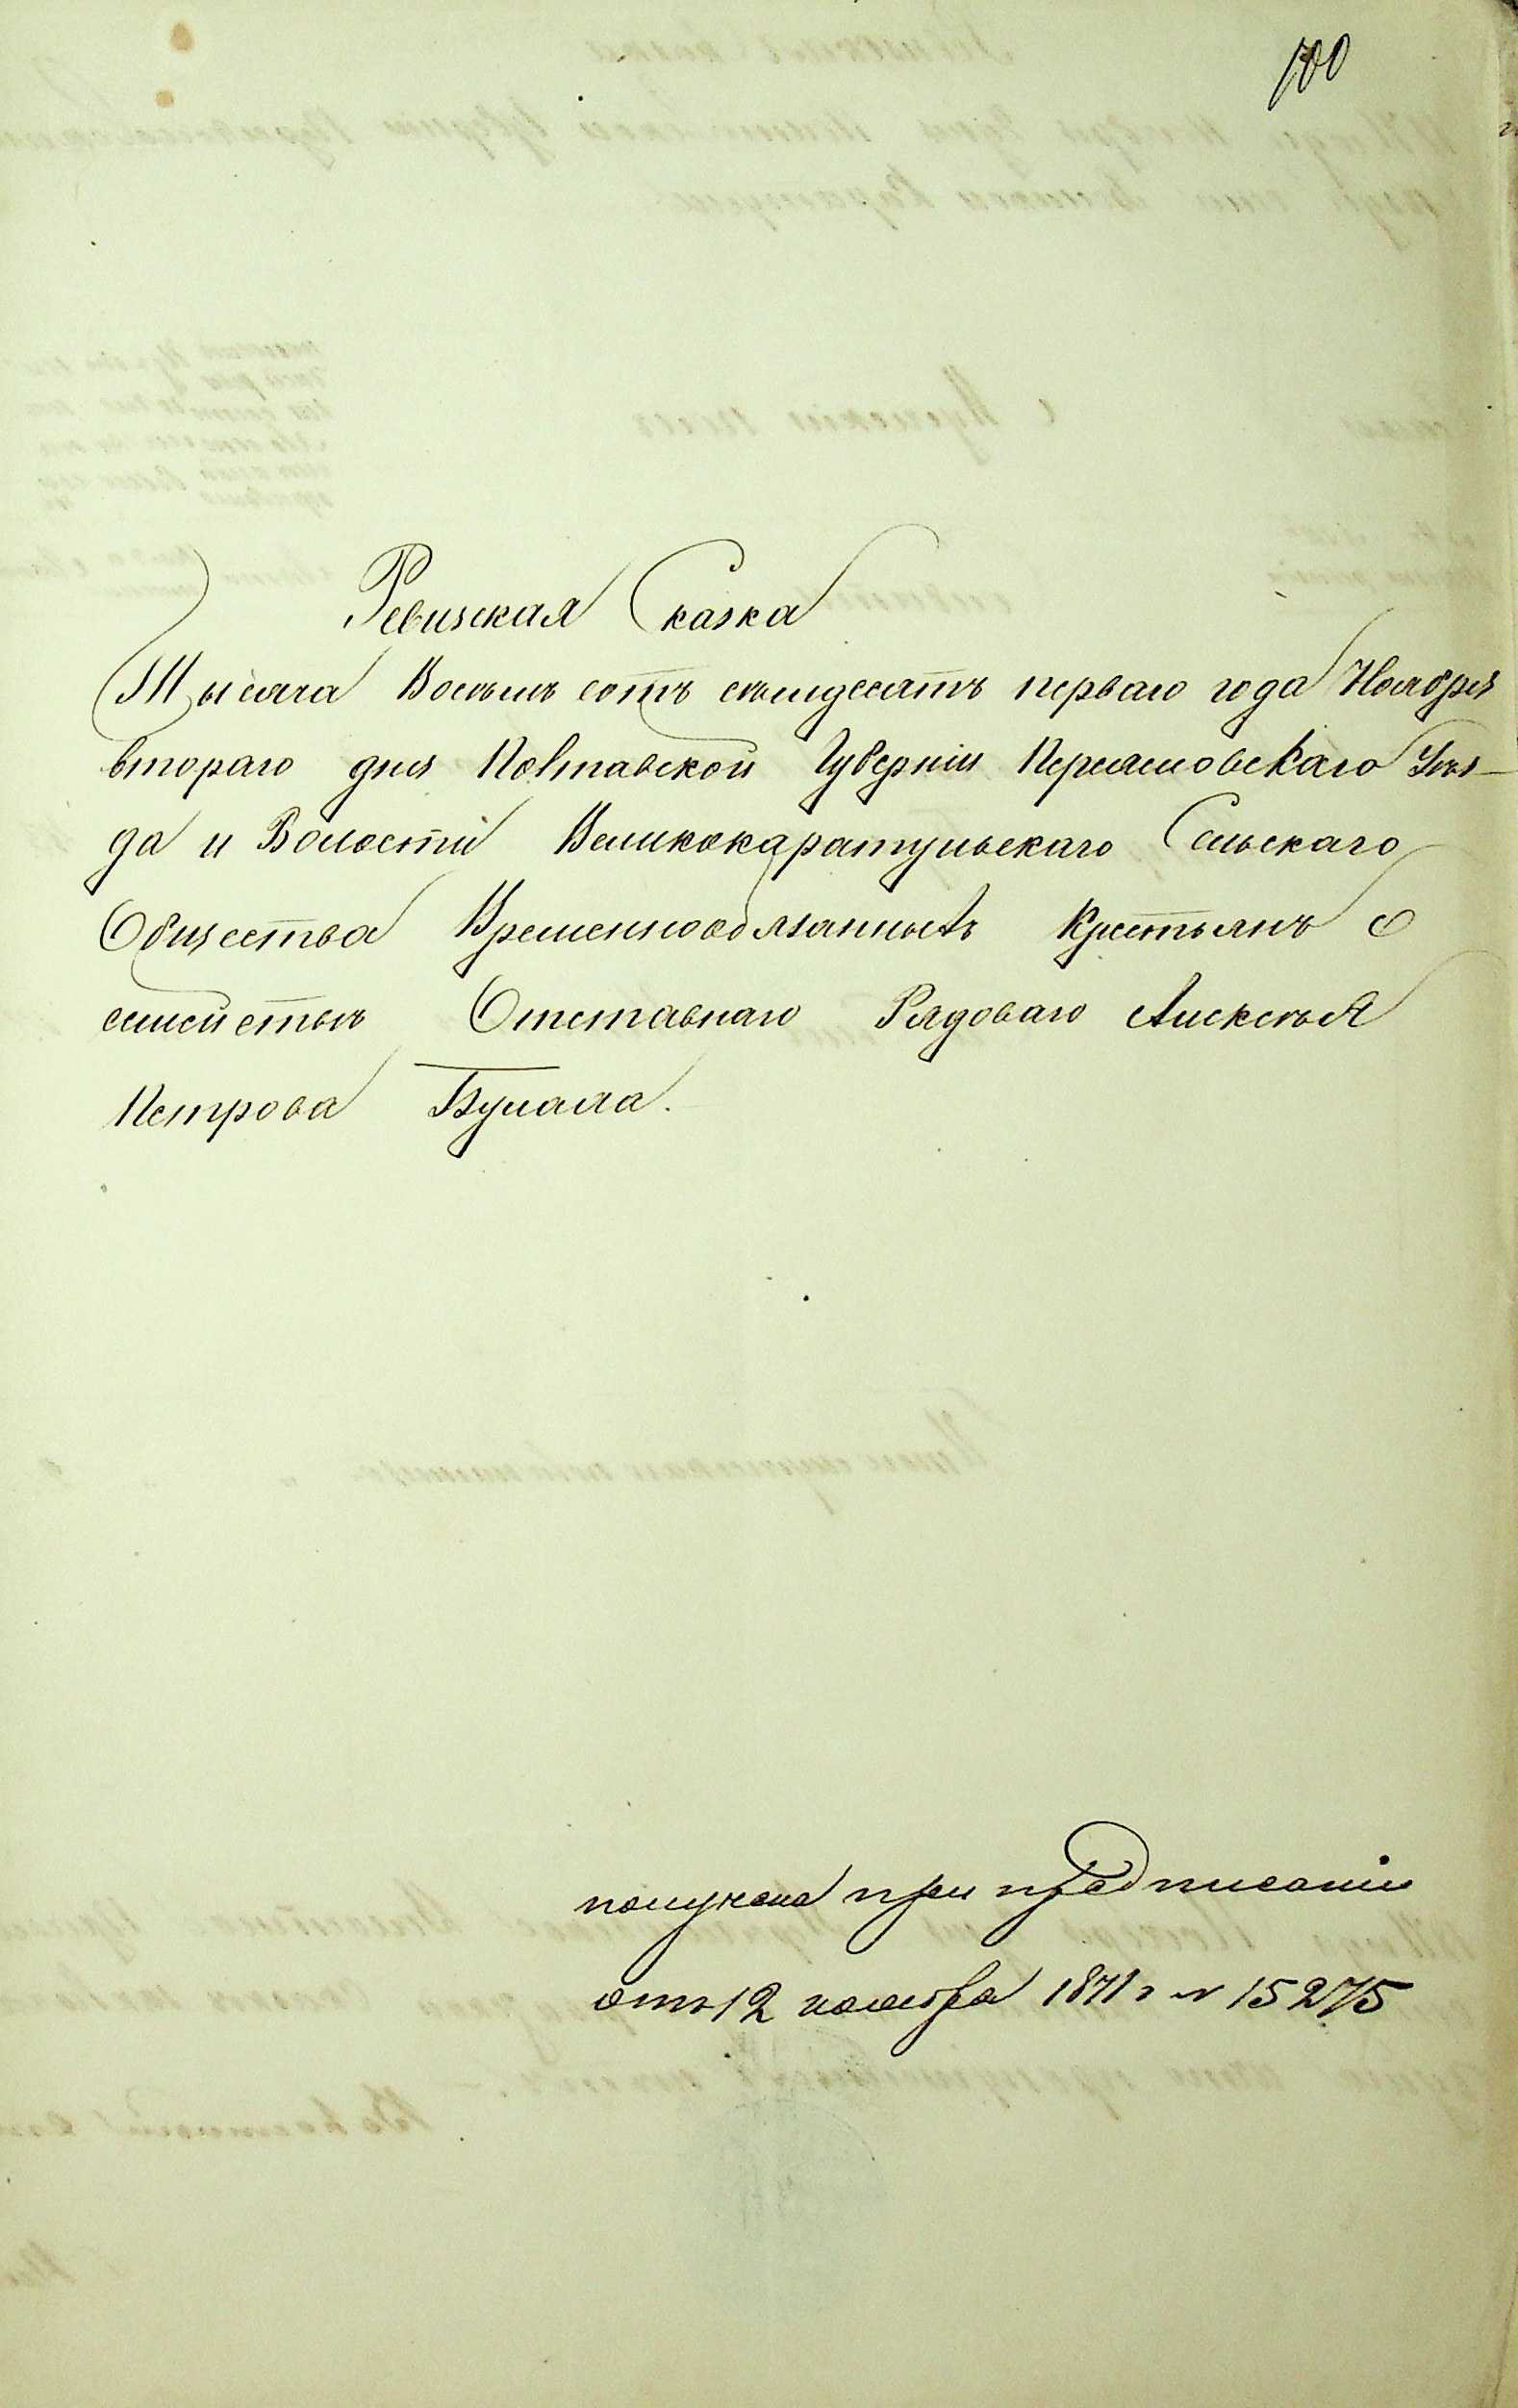 100
Ревизская Сказка
Тысяча Восемь сотъ семьдесятъ перваго года Ноября
втораго дня Полтавской Губерніи Переясловскаго Уѣз-
да и Волости Великокаратульскаго Сельскаго
Общества Временнообязанныхъ Крестьянъ о
семействѣ Отставнаго Рядоваго Алексѣя
Петрова
получена при предписаніи
отъ 12 ноября 1871 г № 15275